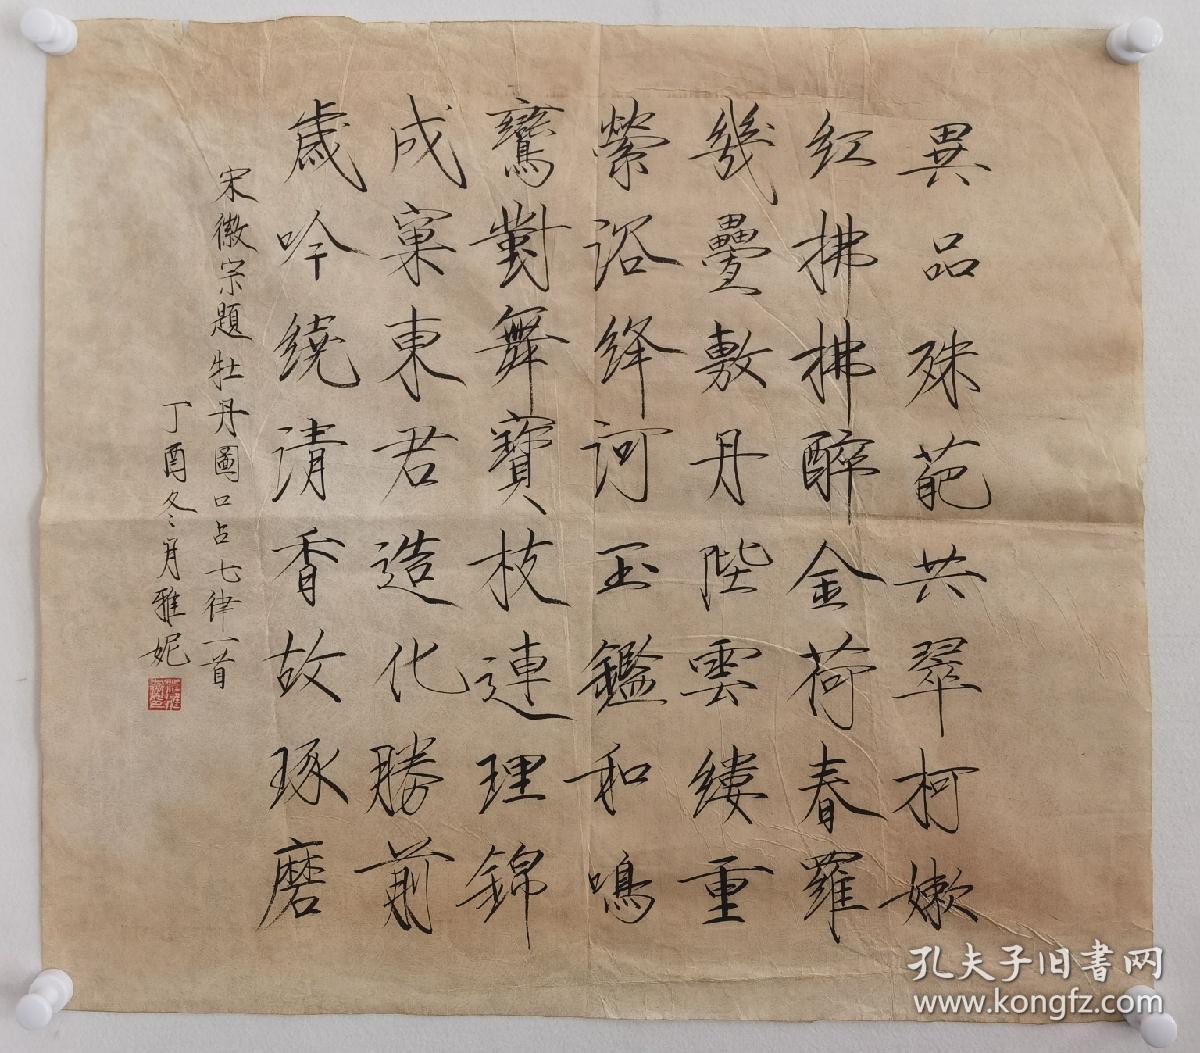 異品殊葩共翠柯嫩
红拂拂醉金荷春羅
幾疊敷丹陛雲縷重
縈浴絳河玉鑑和鳴
鸞對舞寶枝連理錦
成窠東君造化勝前
歲吟繞清香故琢磨
宋徽宗題牡丹圖口占七律一首
丁酉冬月雅妮
孔夫子旧書网
www.kongfz.com